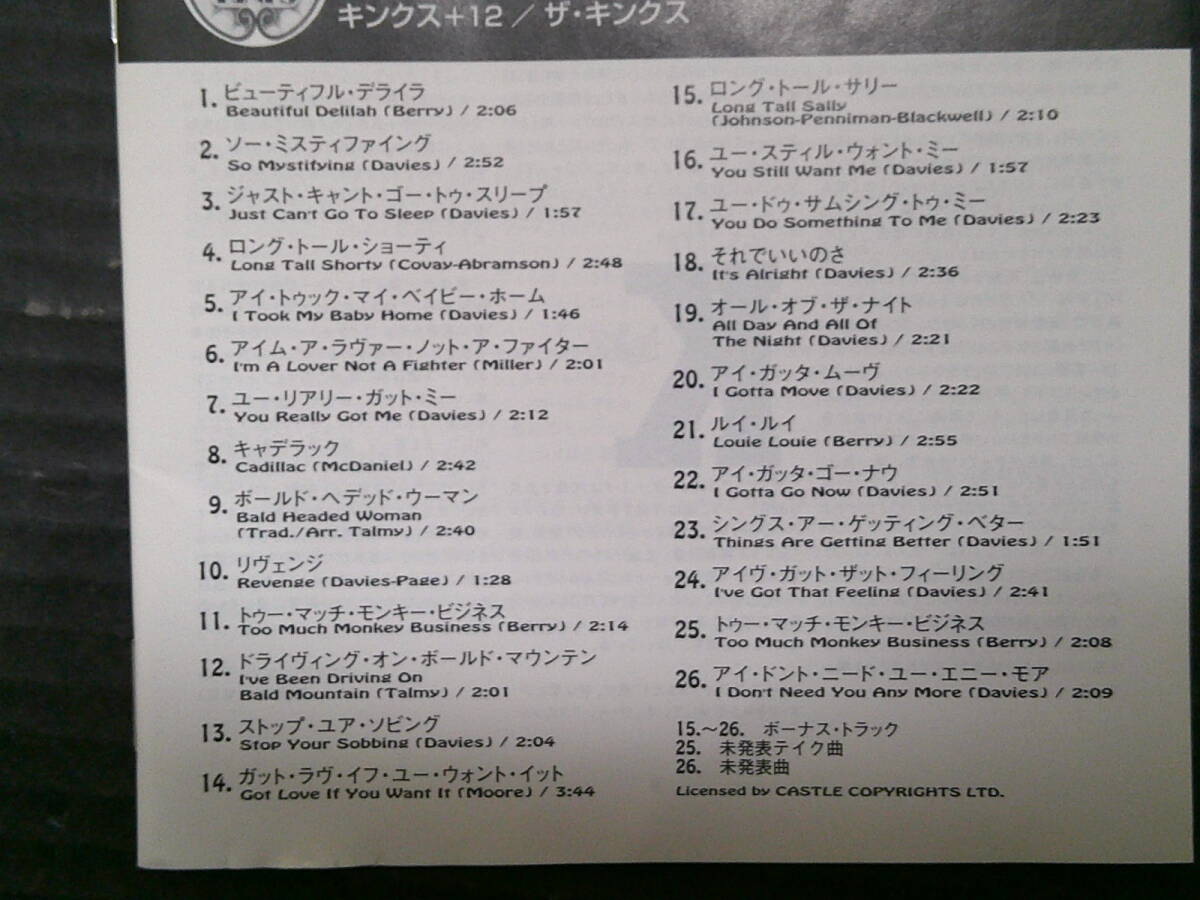 キンクス+12 / ザ・キンクス
1. ビューティフル・デライラ
Beautiful Delilah (Berry) / 2:06
2. ソー・ミスティファイング
So Mystifying (Davies) / 2:52
3. ジャスト・キャント・ゴー・トゥ・スリープ
Just Can't Go To Sleep (Davies) / 1:57
4. ロング・トール・ショーティ
Long Tall Shorty (Covay-Abramson) / 2:48
5. アイ・トゥック・マイ・ベイビー・ホーム
I Took My Baby Home (Davies) / 1:46
6. アイム・ア・ラヴァー・ノット・ア・ファイター
I'm A Lover Not A Fighter (Miller) / 2:01
7. ユー・リアリー・ガット・ミー
You Really Got Me (Davies) / 2:12
8. キャデラック
Cadillac (McDaniel) / 2:42
9. ボールド・ヘデッド・ウーマン
Bald Headed Woman
(Trad./Arr. Talmy) / 2:40
10. リヴェンジ
Revenge (Davies-Page) / 1:28
11. トゥー・マッチ・モンキー・ビジネス
Too Much Monkey Business (Berry) / 2:14
12. ドライヴィング・オン・ボールド・マウンテン
I've Been Driving On
Bald Mountain (Talmy) / 2:01
13. ストップ・ユア・ソビング
Stop Your Sobbing (Davies) / 2:04
14. ガット・ラヴ・イフ・ユー・ウォント・イット
Got Love If You Want It (Moore) / 3:44
15. ロング・トール・サリー
Long Tall Sally
(Johnson-Penniman-Blackwell) / 2:10
16. ユー・スティル・ウォント・ミー
You Still Want Me (Davies) / 1:57
17. ユー・ドゥ・サムシング・トゥ・ミー
You Do Something To Me (Davies) / 2:23
18. それでいいのさ
It's Alright (Davies) / 2:36
19. オール・オブ・ザ・ナイト
All Day And All Of
The Night (Davies) / 2:21
20. アイ・ガッタ・ムーヴ
I Gotta Move (Davies) / 2:22
21. ルイ・ルイ
Louie Louie (Berry) / 2:55
22. アイ・ガッタ・ゴー・ナウ
I Gotta Go Now (Davies) / 2:51
23. シングス・アー・ゲッティング・ベター
Things Are Getting Better (Davies) / 1:51
24. アイヴ・ガット・ザット・フィーリング
I've Got That Feeling (Davies) / 2:41
25. トゥー・マッチ・モンキー・ビジネス
Too Much Monkey Business (Berry) / 2:08
26. アイ・ドント・ニード・ユー・エニー・モア
I Don't Need You Any More (Davies) / 2:09
15.〜26. ボーナス・トラック
25. 未発表テイク曲
26. 未発表曲
Licensed by CASTLE COPYRIGHTS LTD.